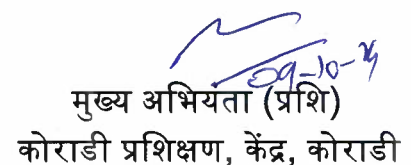 09-10-24
मुख्य अभियंता (प्रशि)
कोराडी प्रशिक्षण, केंद्र, कोराडी